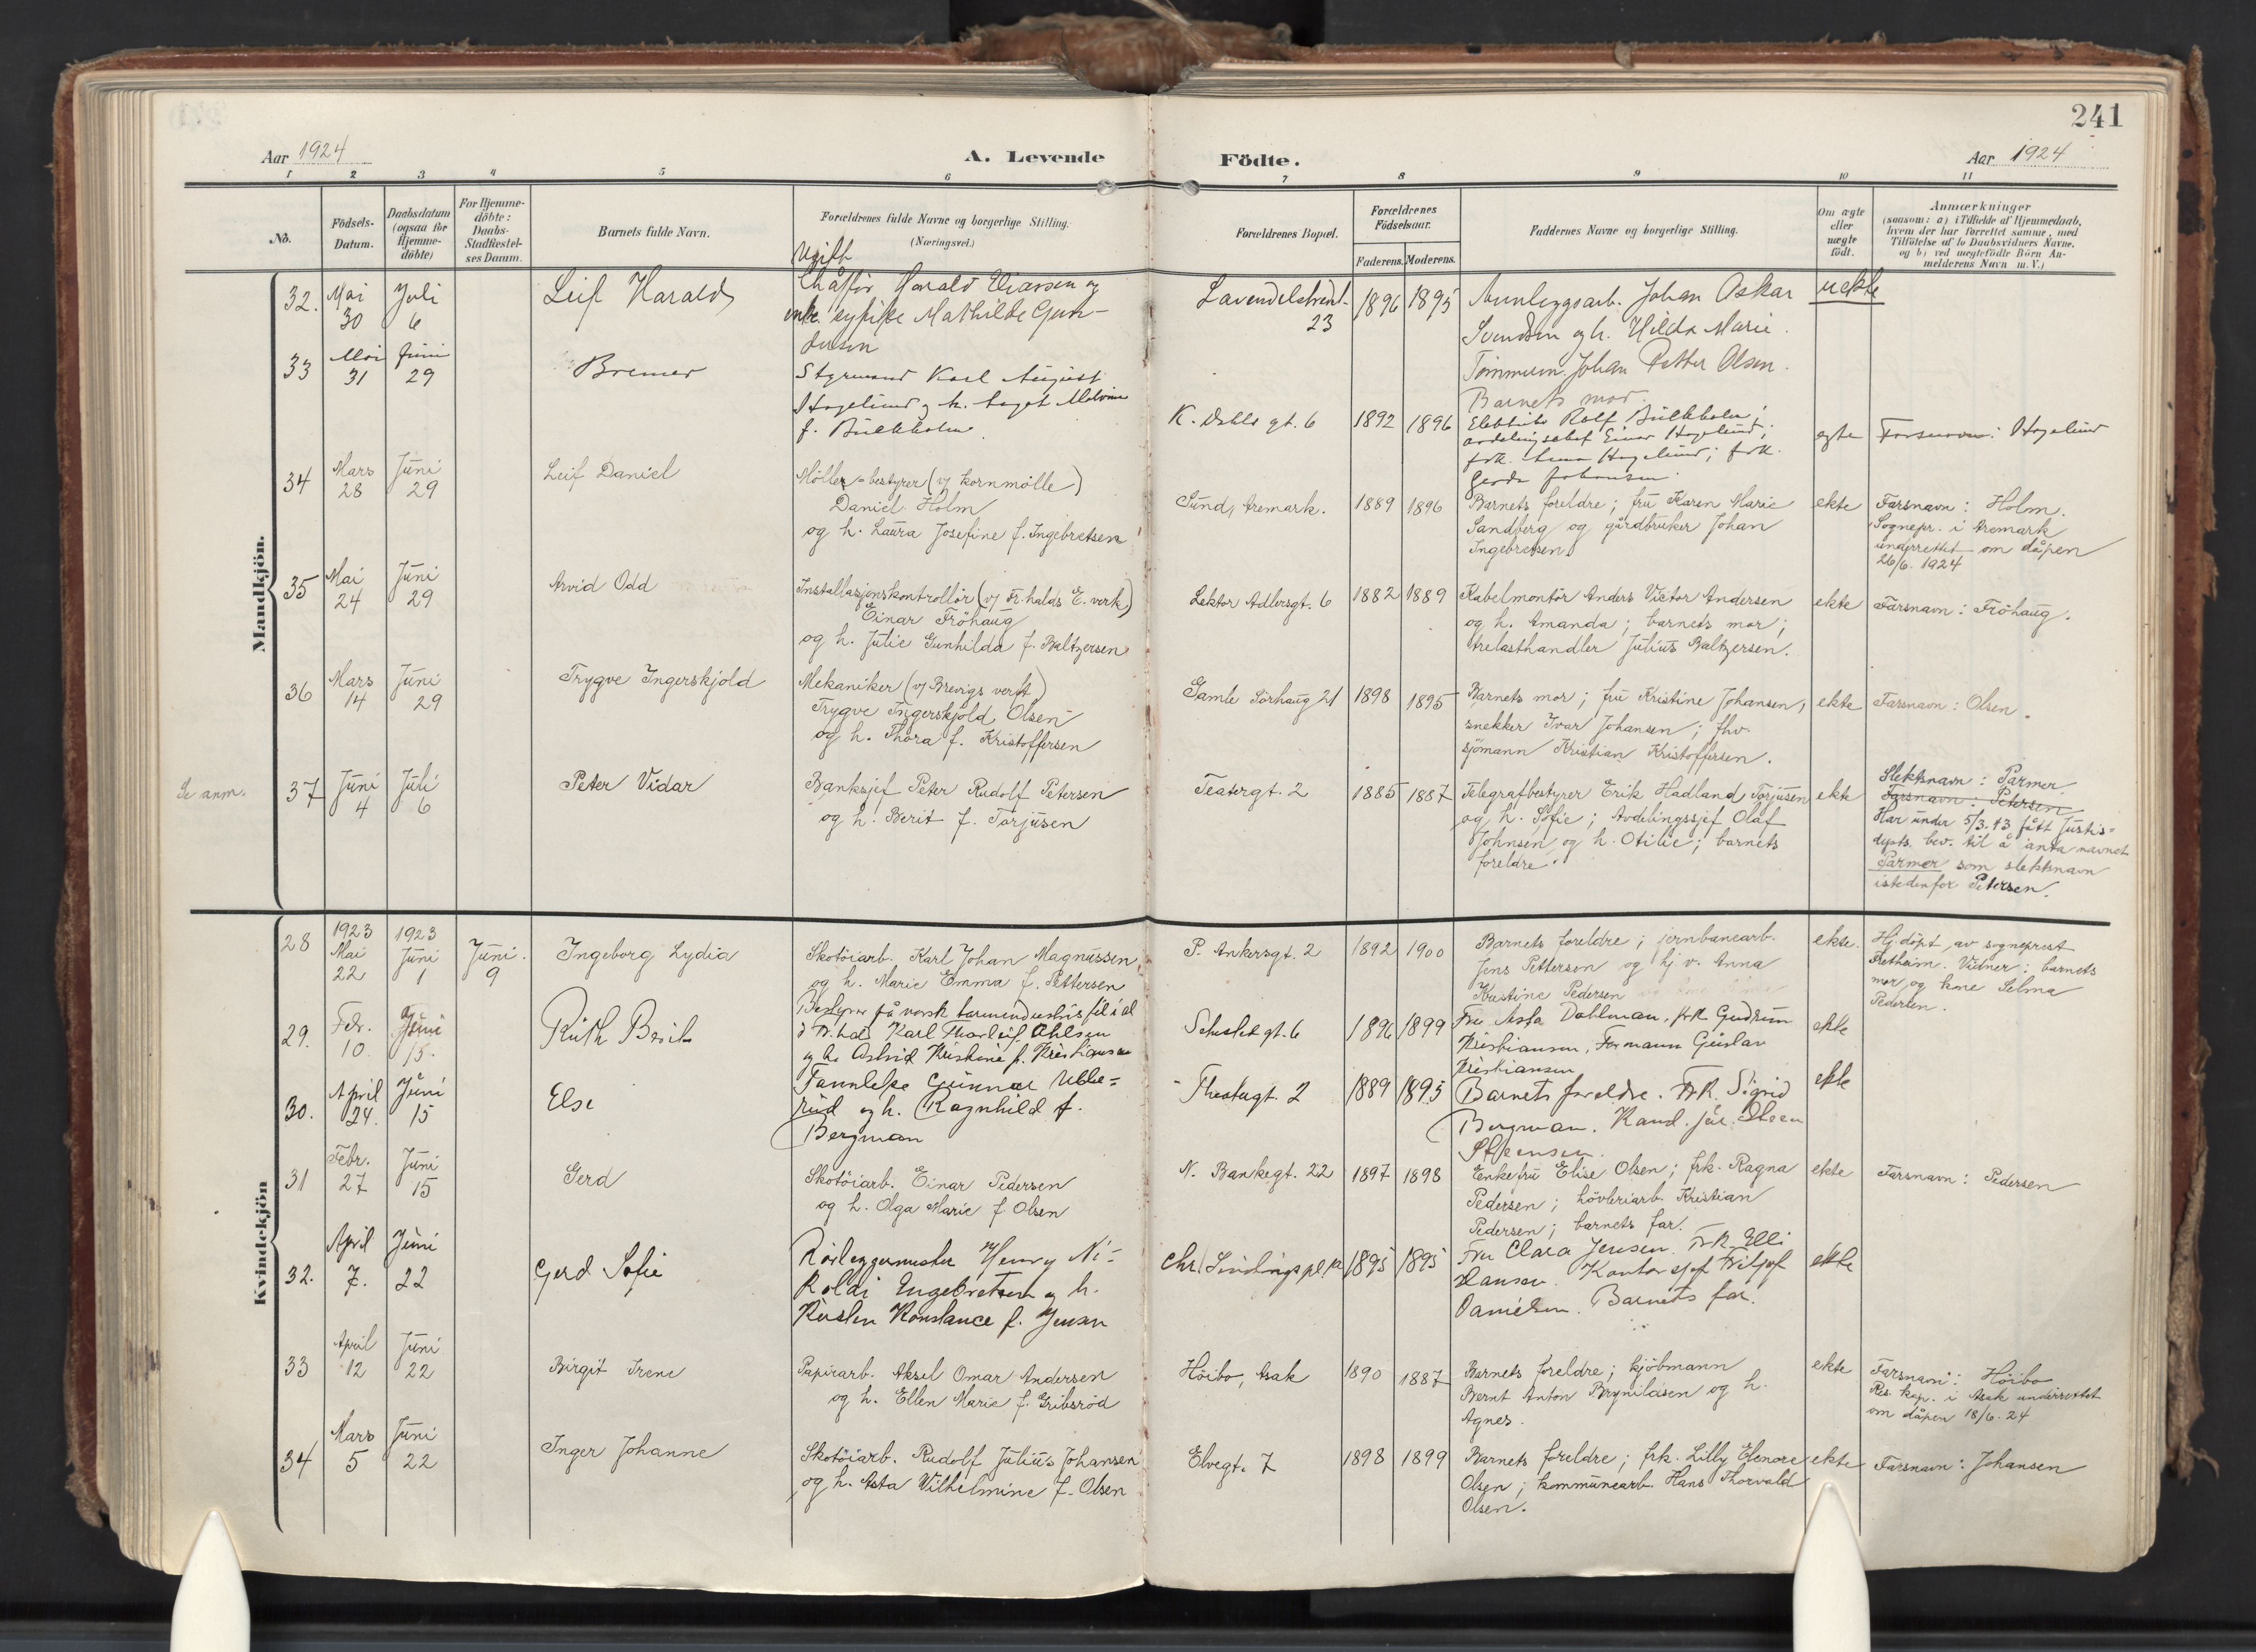 241
Aar 1924
A. Levende
Födte.
Aar 1924
1 2 3 4 5 6 7 8 9 10 11
No.
Födsels-
Datum.
Daabsdatum
(ogsaa for
Hjemme-
döbte)
For Hjemme-
döbte:
Daabs-
Stadfæstel-
ses Datum.
Barnets fulde Navn.
Forældrenes fulde Navne og borgerlige Stilling.
(Næringsvei.)
Forældrenes Bopæl.
Forældrenes
Födselsaar.
Faderens. Moderens.
Faddernes Navne og borgerlige Stilling.
Om ægte
eller
uægte
födt.
Anmærkninger
(saasom: a) i Tilfælde af Hjemmedaab,
hvem der har forrettet samme, med
Tilföielse af to Daabsvidners Navne,
og b) ved uægtefödte Börn An-
melderens Navn m. V.)
Mandkjön.
32. Mai 30
Juli 6
Leif Harald
Ugift
Chaffør Harald
enke sypike Mathilde Gun-
dersen
23
1896 1895
Anleggsarb. Johan Oskar
Svendsen og h. Hilda Marie.
Tømmerm. Johan Petter Olsen.
Barnets mor.
uekte
33 Mai 31
Juni 29
Bremer
Styrmand Karl August
Hagelund og h.
f.
K. gt. 6
1892 1896
Rolf
avdelingschef Einar Hagelund;
frk. Hagelund; frk.
Gerda Johansen
egte
Farsnavn: Hagelund
34 Mars 28
Juni 29
Leif Daniel
Möller-bestyrer (v/ kornmölle)
Daniel Holm
og h. Laura Josefine f. Ingebretsen
Sund, Aremark.
1889 1896
Barnets foreldre; fru Karen Marie
Sandberg og gårdbruker Johan
Ingebretsen
ekte
Farsnavn: Holm.
Sognepr. i Aremark
underrettet om dåpen
26/6. 1924
35 Mai 24
Juni 29
Arvid Odd
Installasjonskontrollör (v/ Fr.halds E. verk)
Einar Fröhaug
og h. Julie Gunhilda f. Baltzersen
Lektor Adlersgt. 6
1882 1889
Kabelmontör Anders Victor Andersen
og h. Amanda; barnets mor;
trelasthandler Julius Baltzersen.
ekte
Farsnavn: Fröhaug.
36 Mars 14
Juni 29
Trygve Ingerskjold
Mekaniker (v/ Brevigs verft)
Trygve Ingerskjold Olsen
og h. Thora f. Kristoffersen
Gamle Sörhaug 21
1898 1895
Barnets mor; fru Kristine Johansen,
snekker Ivar Johansen; fhv.
sjömann Kristian Kristoffersen.
ekte
Farsnavn: Olsen.
Se anm.
37 Juni 4
Juli 6
Peter Vidar
Banksjef Peter Rudolf Petersen
og h. Berit f. Torjusen
Teatergt. 2
1885 1887
Telegrafbestyrer Erik Hadland Torjusen
og h. Sofie; Avdelingssjef Olaf
Johnsen og h. Otilie; barnets
foreldre.
ekte
Slektsnavn: Parmer.
Farsnavn: Petersen
Har under 5/3.43 fått Justis-
depts. bev. til å anta navnet
Parmer som slektsnavn
istedenfor Petersen.
Kvindekjön
28 1923 Mai 22
1923 Juni 1
Juni 9
Ingeborg Lydia
Skotöiarb. Karl Johan Magnussen,
og h. Marie Emma f. Pettersen
P. Ankersgt. 2
1892 1900
Barnets foreldre; jernbanearb.
Jens Petterson og hj. v. Anna
Kristine Pedersen
ekte.
Hj.döpt av sogneprest
Fretheim. Vidner: barnets
mor og kone Selma
Pedersen.
29. Feb. 10
Juni 15.
Ruth Berit
Bestyrer på norsk
Karl Thorleif Ohlsen
og h. Astrid Kristine f. Kristiansen
gt. 6
1896 1899
Fru Asta Dahlman, frk Gudrun
Kristiansen, Formann
Kristiansen
ekte
30. April 24.
Juni 15
Else
Tannlege Gunnar Ubbe-
rud og h. Ragnhild f.
Bergman
Theatergt. 2
1889 1895
Barnets foreldre. Frk. Sigrid
Bergman. Kand. jur. Steen
ekte
31 Febr. 27
Juni 15
Gerd
Skotöiarb. Einar Pedersen
og h. Olga Marie f. Olsen
N. Bankegt. 22
1897 1898
Enkefru Elise Olsen; frk. Ragna
Pedersen; hövleriarb. Kristian
Pedersen; barnets far.
ekte
Farsnavn: Pedersen
32. April 7.
Juni 22
Gerd Sofie
Rörleggermester Henry Ni-
kolai Engebretsen og h.
Kirsten Konstance f. Jensen
Chr. Sindings pl.
1895 1895
Fru Clara Jensen. Frk. Elli
Hansen. Kontorsjef Fritjof
Danielsen. Barnets far.
ekte
33 April 12
Juni 22
Birgit Irene
Papirarb. Aksel Omar Andersen
og h. Ellen Marie f. Gribsröd
Höibo, Asak
1890 1887
Barnets foreldre; kjöbmann
Bernt Anton Brynildsen og h.
Agnes.
ekte
Farsnavn: Höibo
Res. kap. i Asak underrettet
om dåpen 18/6. 24
34 Mars 5
Juni 22
Inger Johanne
Skotöiarb. Rudolf Julius Johansen
og h. Asta Vilhelmine f. Olsen
Elvegt. 7
1898 1899
Barnets foreldre; frk. Lilly Elenore
Olsen; kommunearb. Hans Thorvald
Olsen.
ekte
Farsnavn: Johansen